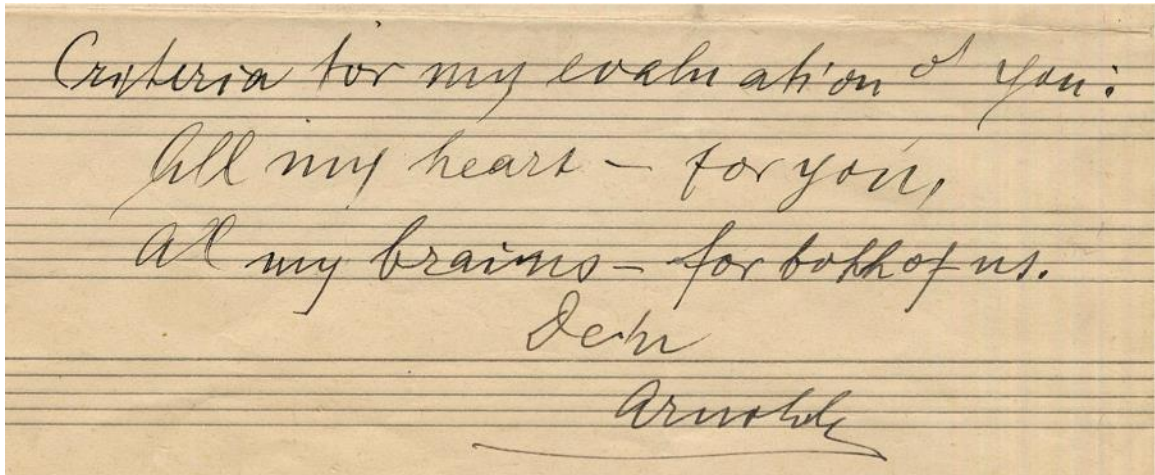 Criteria for my evaluation of you:
All my heart – for you,
All my brains – for both of us.
Dein
Arnold